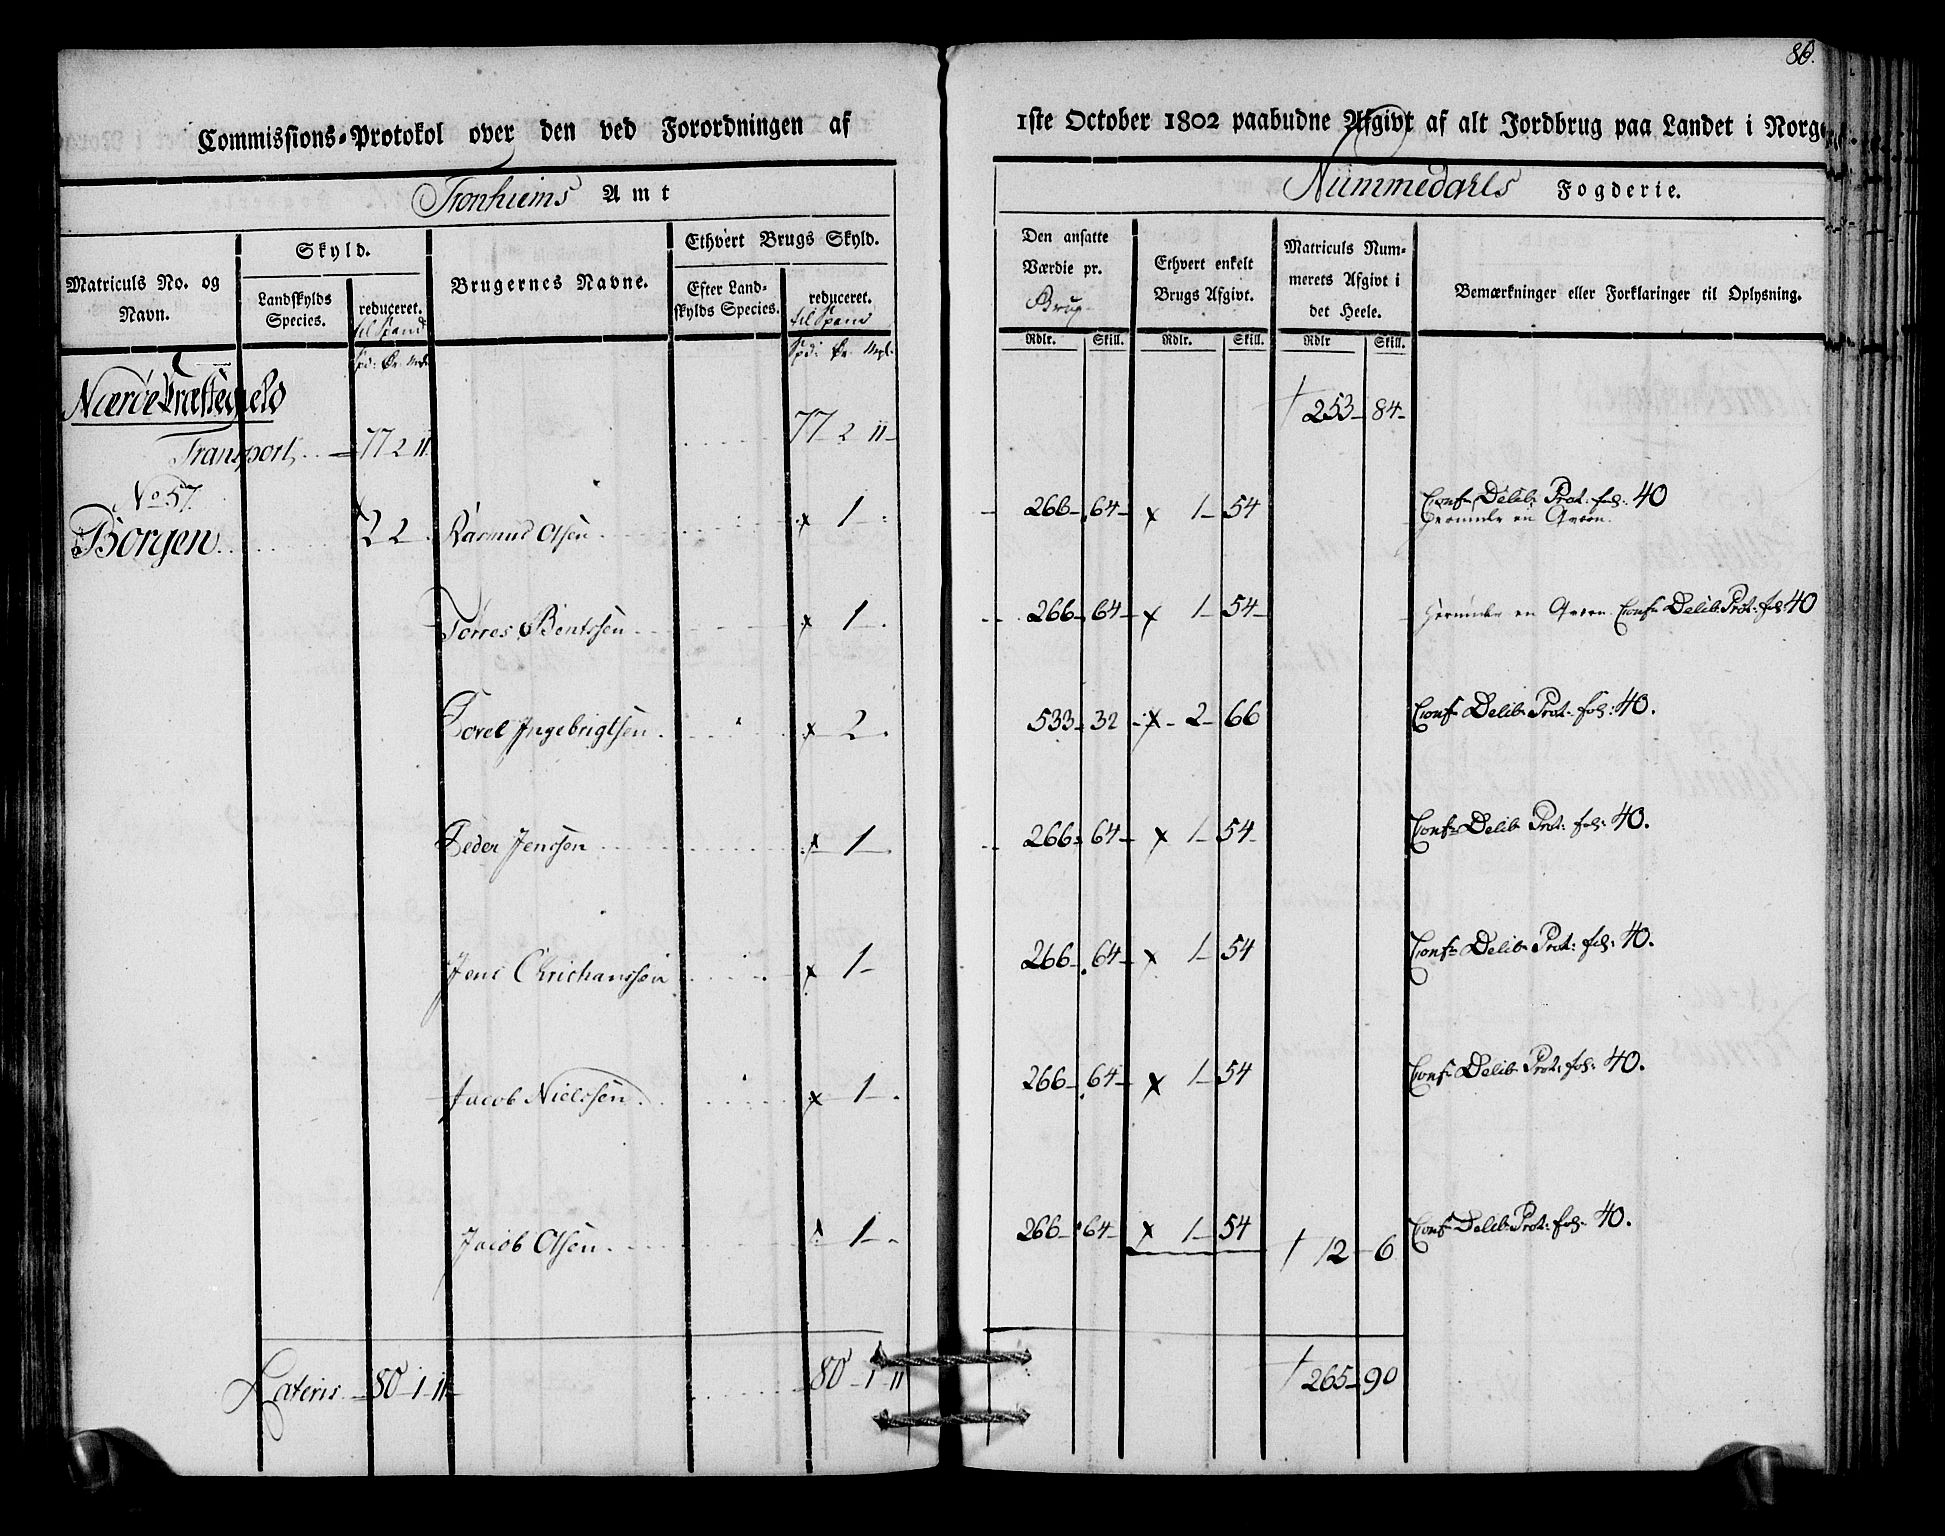 86.
Commissions-Protokol over den ved Forordningen af 1ste October 1802 paabudne Afgivt af alt Jordbrug paa Landet i Norge
Tronhiems Amt
Nummedahls Fogderie.
Matriculs No. og Navn.
Skyld.
Landskylds Species.
reduceret. til Spand
Spd: Ør. Mrkl.
Brugernes Navne.
Ethvert Brugs Skyld.
Efter Land-skylds Species.
reduceret. til Spand
Spd: Ør. Mrkl.
Den ansatte Værdie pr. Brug
Rdlr. Skill.
Ethvert enkelt Brugs Afgivt.
Rdlr. Skill.
Matriculs Num-merets Afgivt i det Heele.
Rdlr Skill.
Bemærkninger eller Forklaringer til Oplysning.
Nærøe Præstegield
Transport 77 2 11 77 2 11 253 84
No 57.
Borgen 2 2 Rasmus Olsen 1 266 64 x 1 54 Conf Delib: Prot: fol: 40
herunder en Qvern.
Torres Bentssen x 1 266 64 x 1 54 herunder en Qvern Conf Delib Prot: fol 40
Povel Ingebrigtsen x 2 533 32 x 2 66 Conf Delib Prot: fol: 40.
Peder Jenssen x 1 266 64 x 1 54 Conf Delib Prot: fol: 40.
Jens Christianssen x 1 266 64 x 1 54 Conf Delib Prot: fol: 40.
Jacob Nielssen x 1 266 64 x 1 54 Conf Delib Prot: fol: 40.
Jacob Olsen x 1 266 64 x 1 54 12 6 Conf Delib Prot: fol: 40.
Lateris 80 1 11 80 1 11 265 90